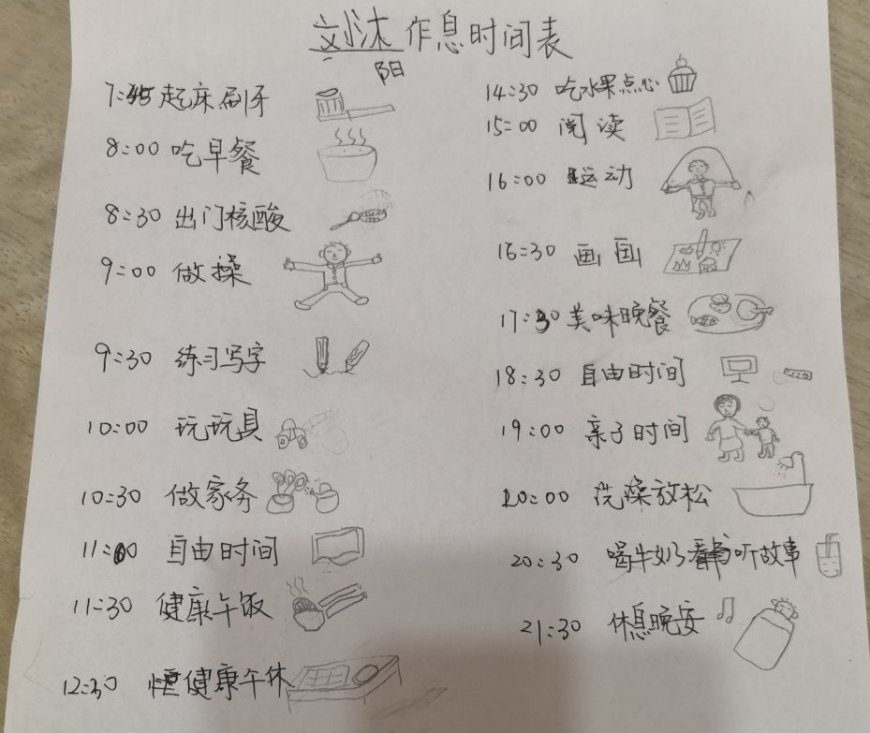 刘沐阳作息时间表
7:45 起床刷牙
8:00 吃早餐
8:30 出门核酸
9:00 做操
9:30 练习写字
10:00 玩玩具
10:30 做家务
11:00 自由时间
11:30 健康午饭
12:30 健康午休
14:30 吃水果点心
15:00 阅读
16:00 运动
16:30 画画
17:30 美味晚餐
18:30 自由时间
19:00 亲子时间
20:00 洗澡放松
20:30 喝牛奶看书听故事
21:30 休息晚安